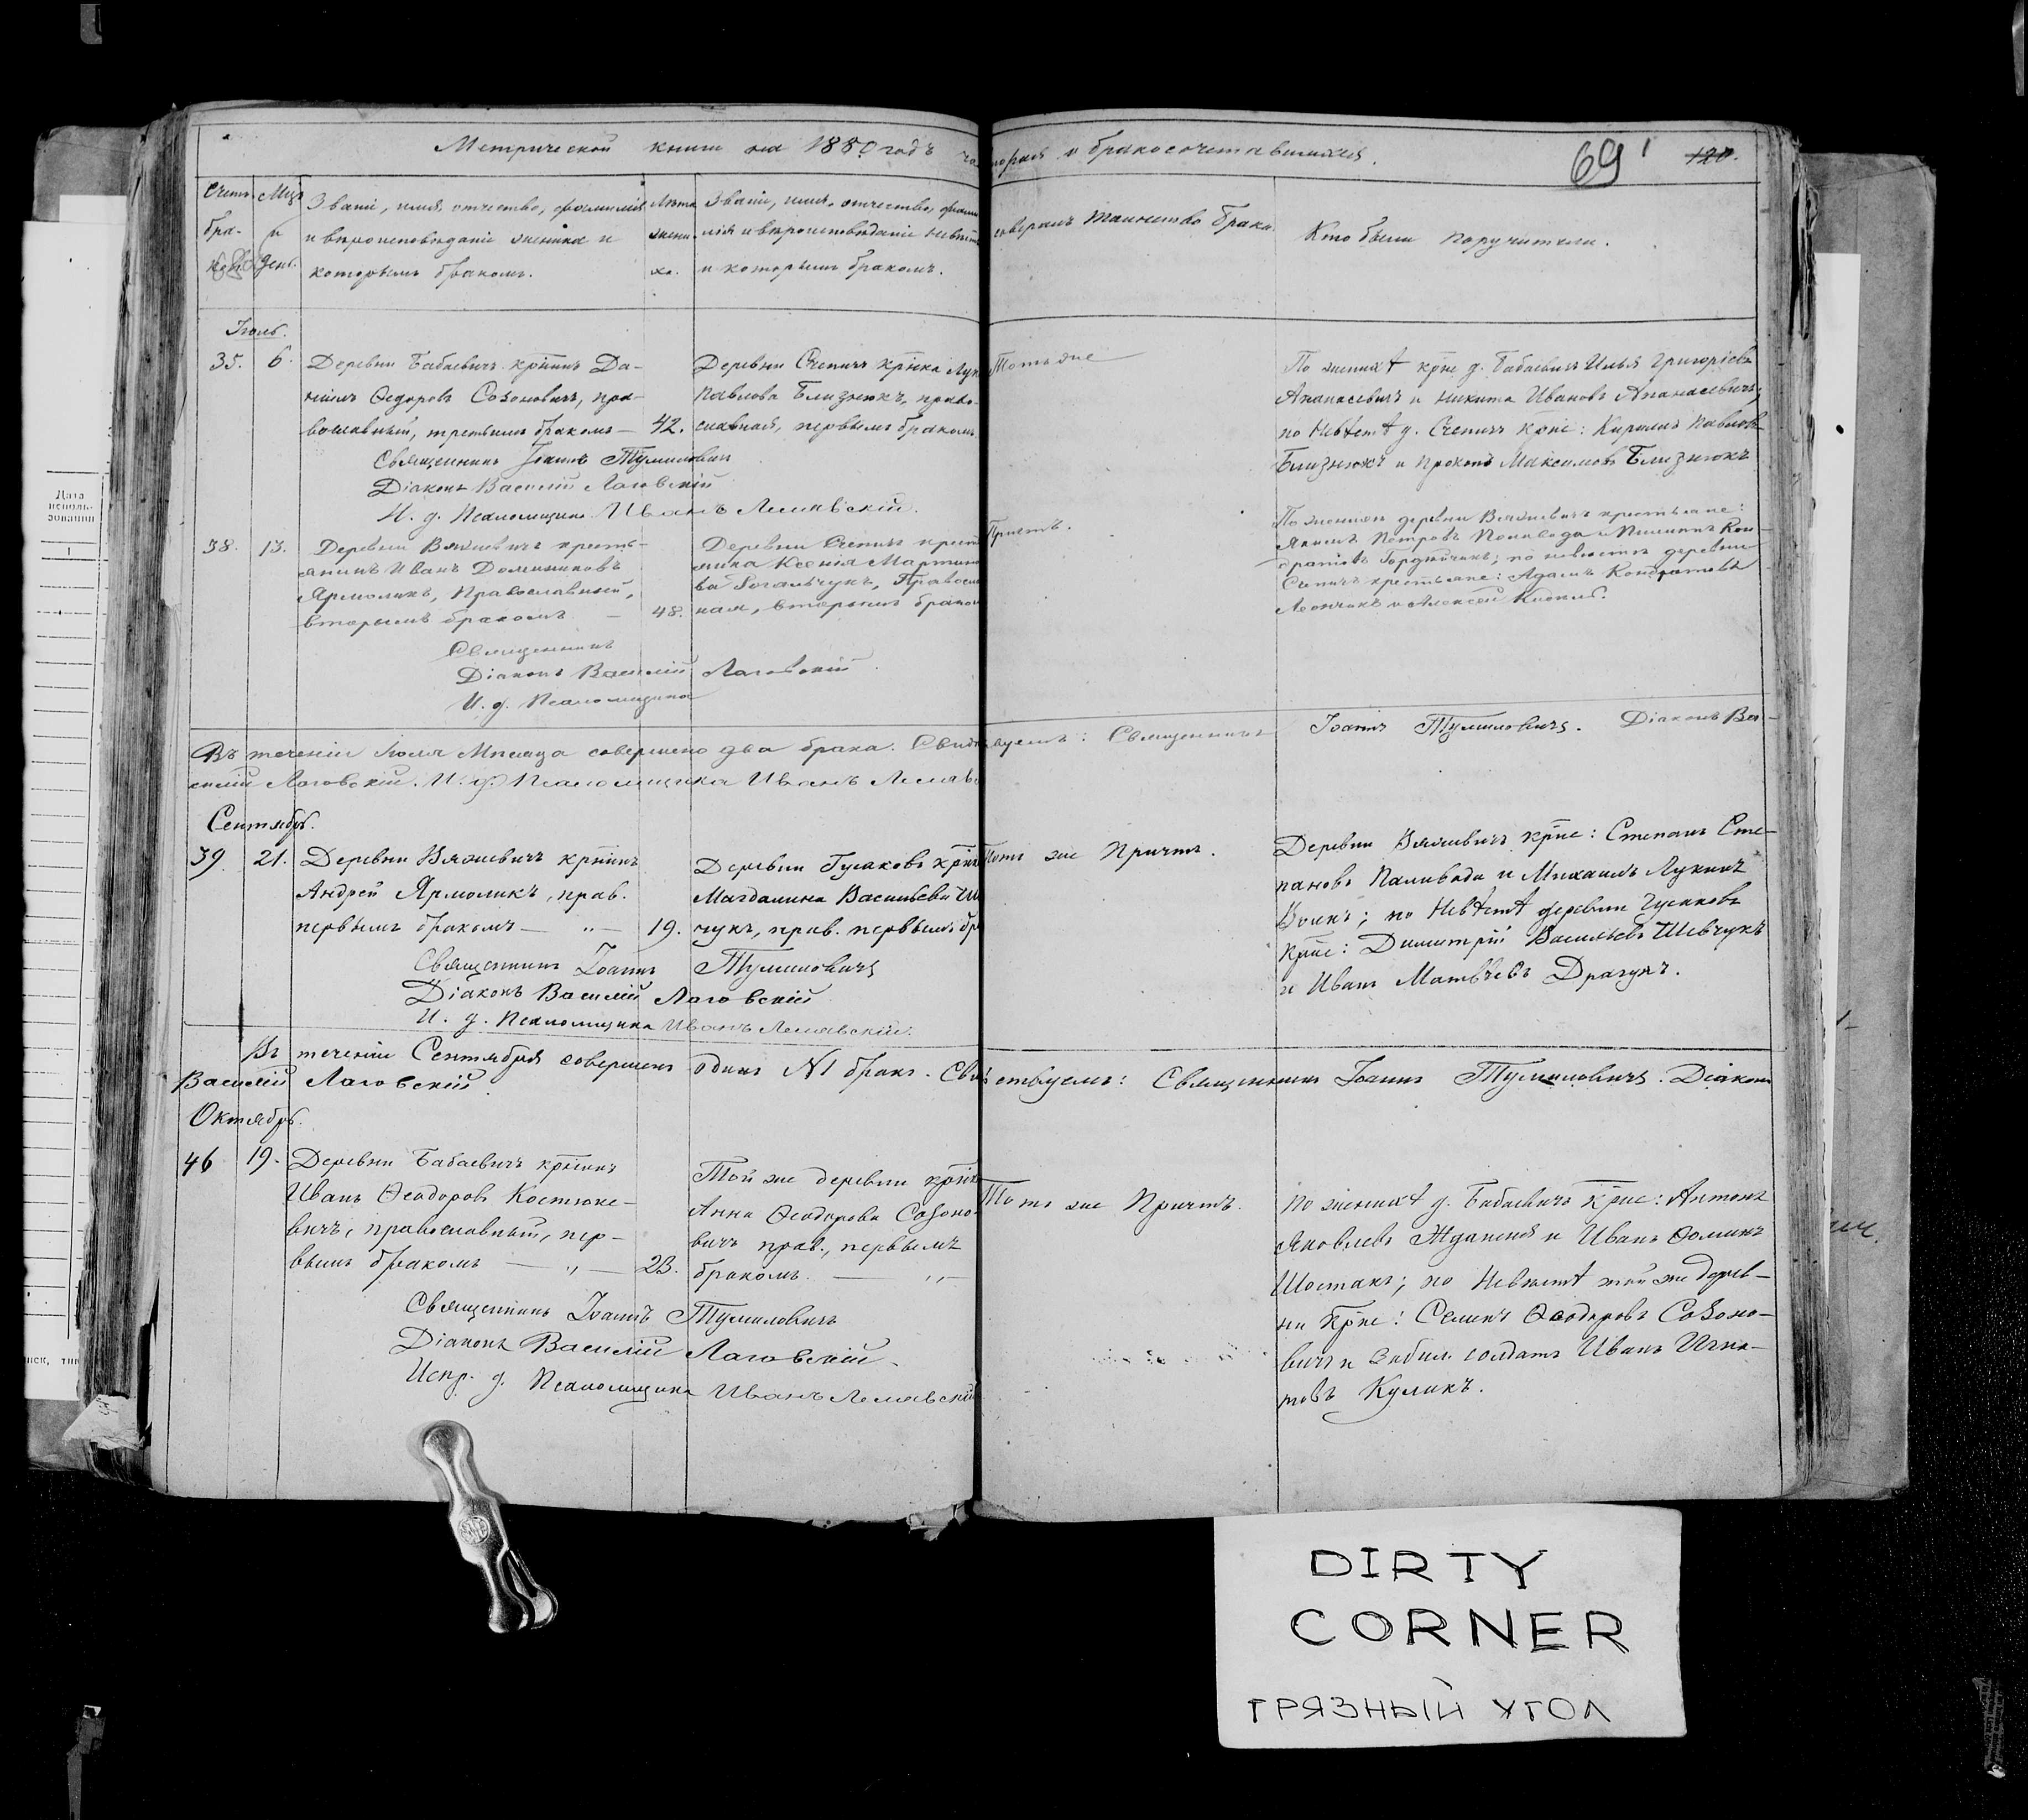 Метрической книги на 1880 годъ
о бракосочетавшихся.
69
120.
Счетъ бра-
Мцъ и день.
Званіе, имя, отчество, фамилія
и вѣроисповѣданіе жениха и
которымъ бракомъ.
Лѣта
жени-
ха.
Званіе, имя, отчество, фами
лія и вѣроисповѣданіе невѣст
и которымъ бракомъ.
совершалъ таинство брака.
Кто были поручители.
Іюль.
35. 6.
Деревни Бабаевичъ крнинъ Да-
ніилъ Ѳедоровъ Созоновичъ, пра-
вославный, третьимъ бракомъ —
42.
Деревни Счепичъ крнка Лук
Павлова Близнюкъ, право-
славная, первымъ бракомъ
Тотъ же
По женихѣ крне д. Бабаевичъ Илья Григоріевъ
Апанасевичъ и Никита Ивановъ Апанасевичъ;
по невѣстѣ д. Счепичъ крне: Кириллъ Павловъ
Близнюкъ и Прокопъ Максимовъ Близнюкъ
Священникъ Іоаннъ Тумиловичъ
Діаконъ Василій Лаговскій
И. д. Псаломщика Иванъ Лемявскій.
38. 13.
Деревни Вяжевичъ кресть-
янинъ Иванъ Доминиковъ
Ярмоликъ, Православный,
вторымъ бракомъ —
48.
Деревни Счепичъ крест
янка Ксенія Мартин
ва Богальчукъ, Правосл
ная, вторымъ браком
Причтъ.
По женихѣ деревни Вяжевичъ крестьяне:
Якимъ Петровъ Паливода и Филиппъ Кон-
дратовъ Гордѣйчикъ; по невѣстѣ деревни
Счепичъ крестьяне: Адамъ Кондратовъ
Леончикъ и Алексей
Священникъ
Діаконъ Василій Лаговскій
И. д. Псаломщика
Въ теченіи Іюля Мѣсяца совершено два брака. Свидѣтельствуемъ: Священникъ Іоаннъ Тумиловичъ. Діаконъ Ва-
силій Лаговскій. И. д. Псаломщика Иванъ Лемяв
Сентябрь.
39 21.
Деревни Вяжевичъ крнинъ
Андрей Ярмоликъ, прав.
первымъ бракомъ — „ —
19.
Деревни Гусаковъ крнк
Магдалина Васильева Ше
чукъ, прав. первымъ бр
Тотъ же Причтъ.
Деревни Вяжевичъ крне: Степанъ Сте-
пановъ Паливода и Михаилъ Лукинъ
Волкъ; по невѣстѣ деревни Гусаковъ
крне: Димитрій Васильевъ Шевчукъ
и Иванъ Матвѣевъ Драгунъ.
Священникъ Іоаннъ Тумиловичъ
Діаконъ Василій Лаговскій
И. д. Псаломщика Иванъ Лемявскій.
Въ теченіи Сентября совершенъ одинъ №1 бракъ. Свидѣтельствуемъ: Священникъ Іоаннъ Тумиловичъ. Діаконъ
Василій Лаговскій
Октябрь.
46 19.
Деревни Бабаевичъ крнинъ
Иванъ Ѳеодоровъ Костюке-
вичъ, православный, пер-
вымъ бракомъ — „ —
23.
Той же деревни крнка
Анна Ѳеодорова Созоно-
вичъ прав., первымъ
бракомъ. — „ —
Тотъ же Причтъ.
по женихѣ д. Бабаевичъ крне: Антонъ
Яковлевъ Жданеня и Иванъ Ѳоминъ
Шостакъ; по невѣстѣ той же дерев-
ни крне: Семенъ Ѳеодоровъ Созоно-
вичъ и забил. солдатъ Иванъ Игна-
товъ Куликъ.
Священникъ Іоаннъ Тумиловичъ
Діаконъ Василій Лаговскій
Испр. д. Псаломщика Иванъ Лемявскій
Дата
исполь-
зования
DIRTY
CORNER
ГРЯЗНЫЙ УГОЛ